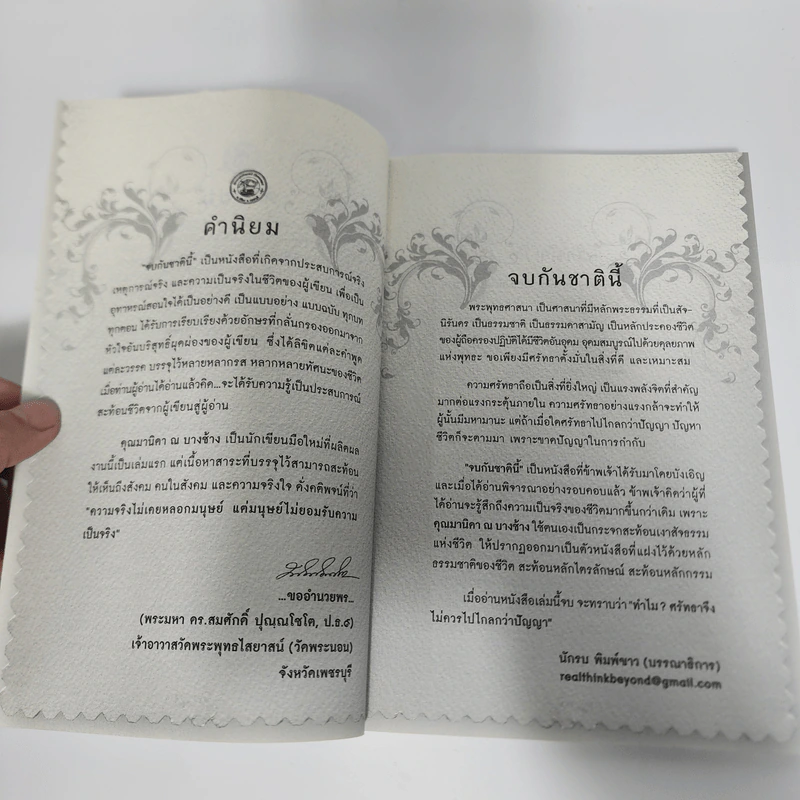 คำนิยม
"จบกันชาตินี้" เป็นหนังสือที่เกิดจากประสบการณ์จริง
เหตุการณ์จริง และความเป็นจริงในชีวิตของผู้เขียน เพื่อเป็น
อุทาหรณ์สอนใจได้เป็นอย่างดี เป็นแบบอย่าง แบบฉบับ ทุกบท
ทุกตอน ได้รับการเรียบเรียงด้วยอักษรที่กลั่นกรองออกมาจาก
หัวใจอันบริสุทธิ์ผุดผ่องของผู้เขียน ซึ่งได้ลิขิตแต่ละคำพูด
แต่ละวรรค บรรจุไว้หลายหลากรส หลากหลายทัศนะของชีวิต
เมื่อท่านผู้อ่านได้อ่านแล้วคิด...จะได้รับความรู้เป็นประสบการณ์
สะท้อนชีวิตจากผู้เขียนสู่ผู้อ่าน
คุณมานิดา ณ บางช้าง เป็นนักเขียนมือใหม่ที่ผลิตผล
งานนี้เป็นเล่มแรก แต่เนื้อหาสาระที่บรรจุไว้สามารถสะท้อน
ให้เห็นถึงสังคม คนในสังคม และความจริงใจ ดั่งคติพจน์ที่ว่า
"ความจริงไม่เคยหลอกมนุษย์ แต่มนุษย์ไม่ยอมรับความ
เป็นจริง"
...ขออำนวยพร...
(พระมหา ดร.สมศักดิ์ ปุณฺณโชโต, ป.ธ.๙)
เจ้าอาวาสวัดพระพุทธไสยาสน์ (วัดพระนอน)
จังหวัดเพชรบุรี
จบกันชาตินี้
พระพุทธศาสนา เป็นศาสนาที่มีหลักพระธรรมที่เป็นสัจ-
นิรันดร เป็นธรรมชาติ เป็นธรรมดาสามัญ เป็นหลักประคองชีวิต
ของผู้ถือครองปฏิบัติได้มีชีวิตอันอุดม อุดมสมบูรณ์ไปด้วยดุลยภาพ
แห่งพุทธะ ขอเพียงมีศรัทธาตั้งมั่นในสิ่งที่ดี และเหมาะสม
ความศรัทธาถือเป็นสิ่งที่ยิ่งใหญ่ เป็นแรงพลังจิตที่สำคัญ
มากต่อแรงกระตุ้นภายใน ความศรัทธาอย่างแรงกล้าจะทำให้
ผู้นั้นมีมหามานะ แต่ถ้าเมื่อใดศรัทธาไปไกลกว่าปัญญา ปัญหา
ชีวิตก็จะตามมา เพราะขาดปัญญาในการกำกับ
"จบกันชาตินี้" เป็นหนังสือที่ข้าพเจ้าได้รับมาโดยบังเอิญ
และเมื่อได้อ่านพิจารณาอย่างรอบคอบแล้ว ข้าพเจ้าคิดว่าผู้ที่
ได้อ่านจะรู้สึกถึงความเป็นจริงของชีวิตมากขึ้นกว่าเดิม เพราะ
คุณมานิดา ณ บางช้าง ใช้ตนเองเป็นกระจกสะท้อนเงาสัจธรรม
แห่งชีวิต ให้ปรากฏออกมาเป็นตัวหนังสือที่แฝงไว้ด้วยหลัก
ธรรมชาติของชีวิต สะท้อนหลักไตรลักษณ์ สะท้อนหลักกรรม
เมื่ออ่านหนังสือเล่มนี้จบ จะทราบว่า "ทำไม? ศรัทธาจึง
ไม่ควรไปไกลกว่าปัญญา"
นักรบ พิมพ์ขาว (บรรณาธิการ)
realthinkbeyond@gmail.com